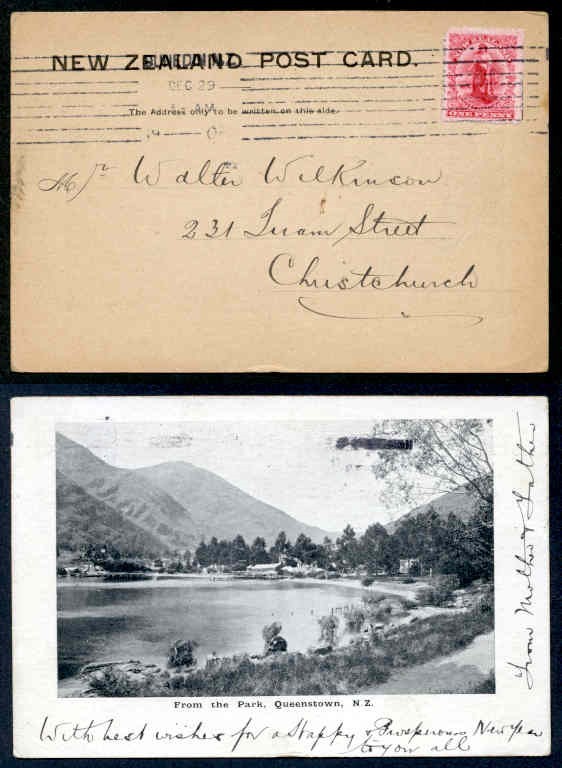 NEW ZEALAND POST CARD.
DEC 29
The Address only to be written on this side.
ONE PENNY
Mr Walter Wilkinson
231 Street
Christchurch
From the Park, Queenstown, N.Z.
With best wishes for a Happy & Prosperous New Year
to you all
From Mother & Father